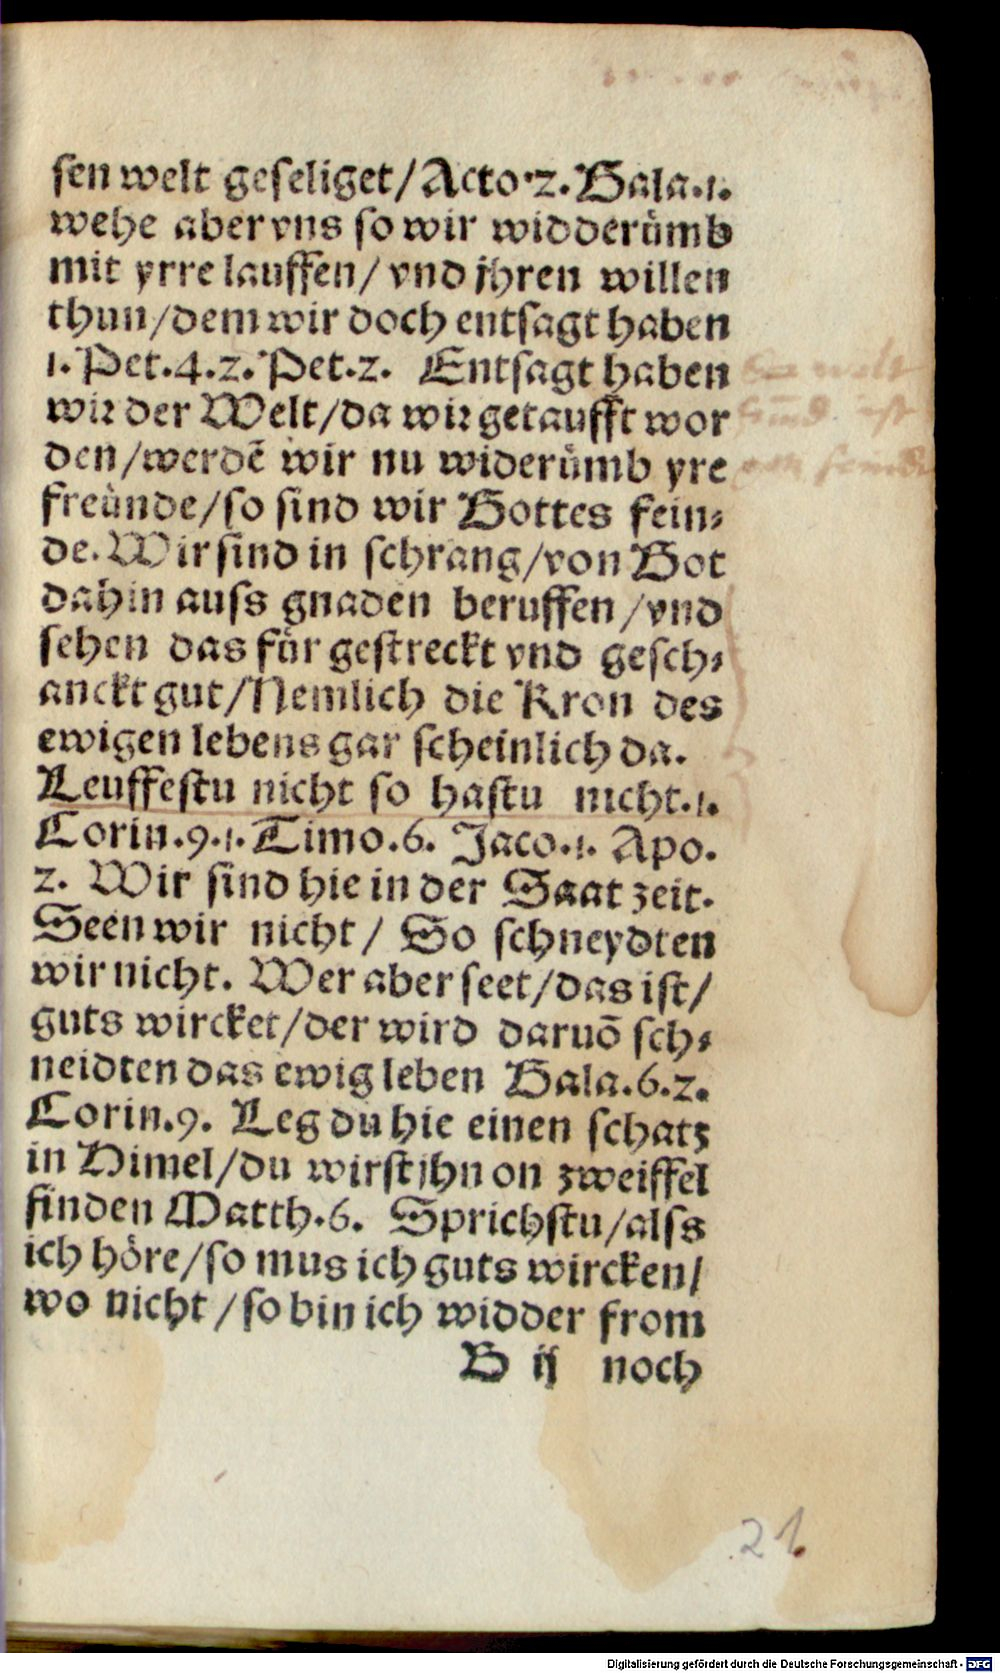 sen welt geseliget/Acto.2. Gala.1.
wehe aber vns so wir widderůmb
mit yrre lauffen/ vnd jhren willen
thun/dem wir doch entsagt haben
1. Pet.4.2. Pet.2. Entsagt haben
wir der Welt/da wir getaufft wor
den/werdē wir nu widerůmb yre
freůnde/so sind wir Gottes fein⸗
de. Wir sind in schrang/von Got
dahin auss gnaden beruffen/vnd
sehen das fůr gestreckt vnd gesch⸗
anckt gut/Nemlich die Kron des
ewigen lebens gar scheinlich da.
Leuffestu nicht so hastu nicht.1.
Corin.9.1. Timo.6. Jaco.1. Apo.
2. Wir sind hie in der Saat zeit.
Seen wir nicht/ So schneydten
wir nicht. Wer aber seet/das ist/
guts wircket/der wird daruō sch⸗
neidten das ewig leben Gala.6.2.
Corin.9. Leg du hie einen schatz
in Himel/du wirst jhn on zweiffel
finden Matth.6. Sprichstu/alss
ich hőre/so mus ich guts wircken/
wo nicht/so bin ich widder from
B ij noch
welt
ist
21.
Digitalisierung gefördert durch die Deutsche Forschungsgemeinschaft - DFG